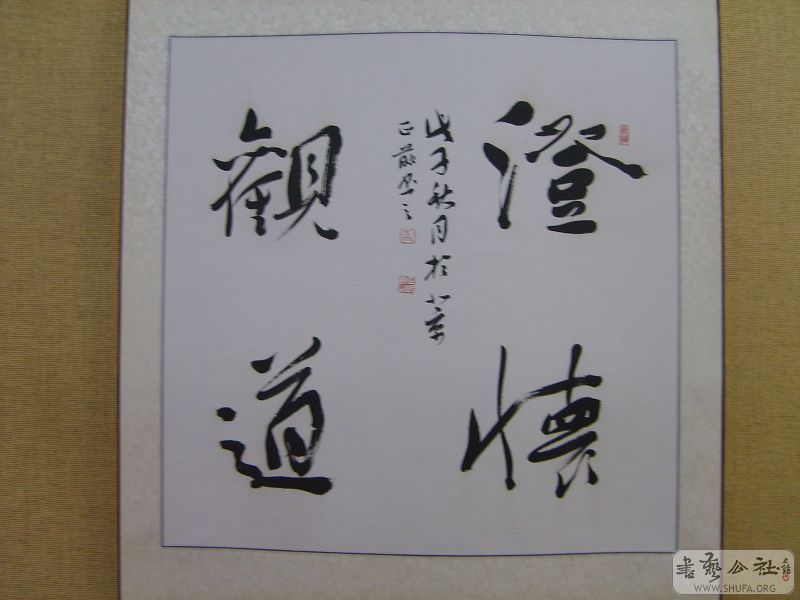 澄懷
觀道
戊子秋月於北京
正龍書之
書藝公社
WWW.SHUFA.ORG